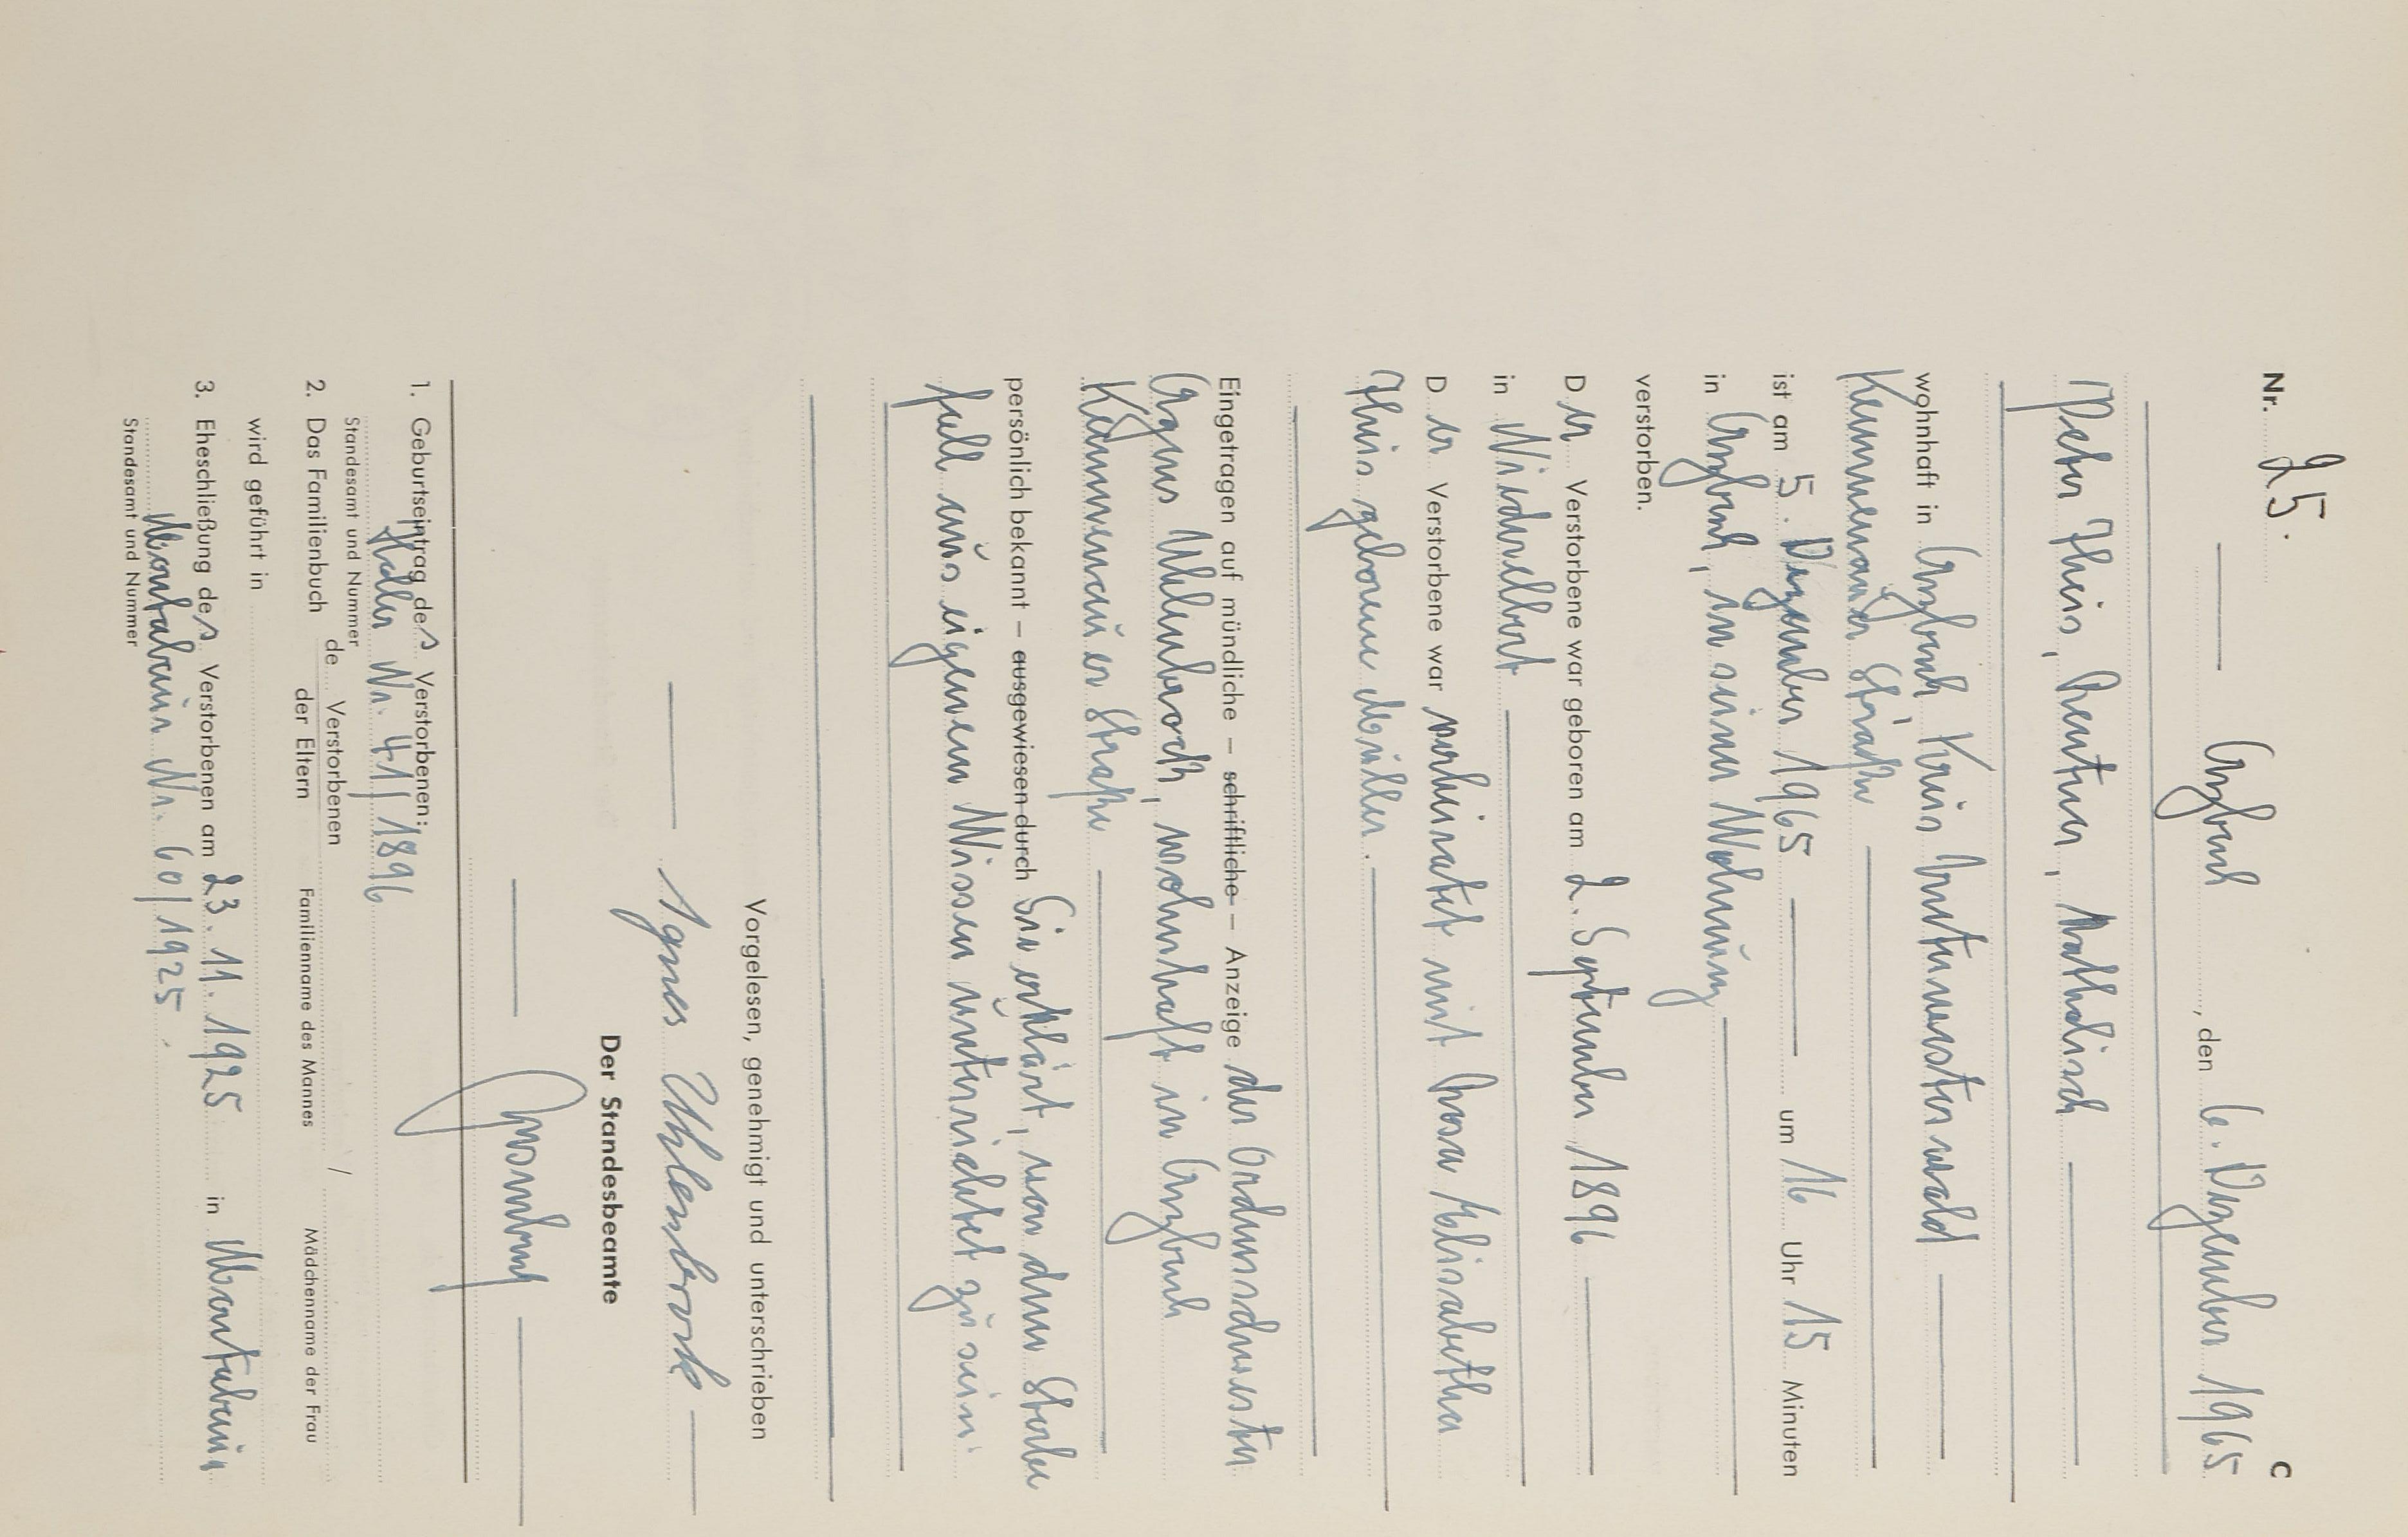 Nr. 25. C
Arzbach, den 6. Dezember 1965
Peter Theis, Rentner, katholisch
wohnhaft in Arzbach Kreis Unterwesterwald
Kemmenauer Straße
ist am 5. Dezember 1965 um 16 Uhr 15 Minuten
in Arzbach, in seiner Wohnung
verstorben.
Der Verstorbene war geboren am 2. September 1896
in Niederelbert
Der Verstorbene war verheiratet mit Rosa Elisabetha
Theis geborene Müller.
Eingetragen auf mündliche – schriftliche – Anzeige der Ordensschwester
Agnes Uhlenbrock, wohnhaft in Arzbach
Kemmenauer Straße
persönlich bekannt – ausgewiesen durch Sie erklärt, von dem Sterbe
fall aus eigenem Wissen unterrichtet zu sein.
Vorgelesen, genehmigt und unterschrieben
Agnes Uhlenbrock
Der Standesbeamte
1. Geburtseintrag des Verstorbenen:
Nr. 41/1896
Standesamt und Nummer
2. Das Familienbuch de Verstorbenen
der Eltern Familienname des Mannes / Mädchenname der Frau
wird geführt in
3. Eheschließung des Verstorbenen am 23.11.1925 in Montabaur
Montabaur Nr. 60/1925.
Standesamt und Nummer